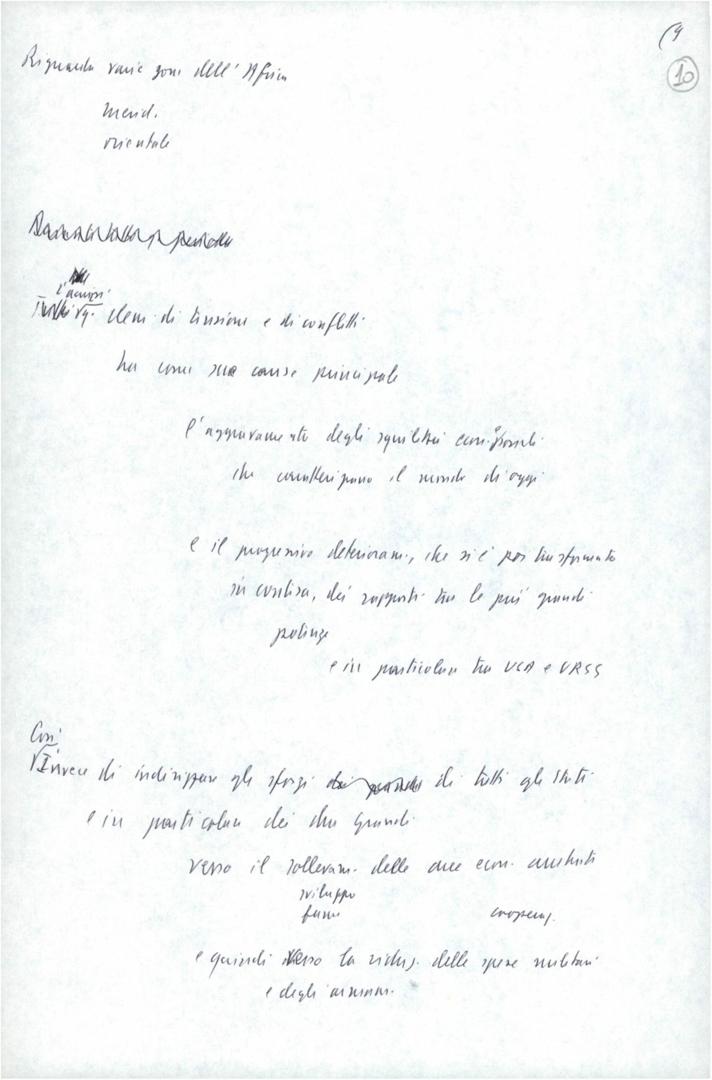 (9
10
Riguarda varie zone dell'Africa
merid.
orientale
L'acuirsi
elem. di tensione e di conflitti
ha come sua causa principale
l'aggravamento degli squilibri
che caratterizzano il mondo di oggi
e il progressivo deterioram., che si è poi trasformato
in corsa, dei rapporti tra le più grandi
potenze
e in particolare tra USA e URSS
Così
Invece di indirizzare gli sforzi di tutti gli Stati
e in particolare dei due grandi
verso il sollevam. delle aree econ. arretrate
sviluppo
fame
cooperaz.
e quindi verso la riduz. delle spese militari
e degli armam.